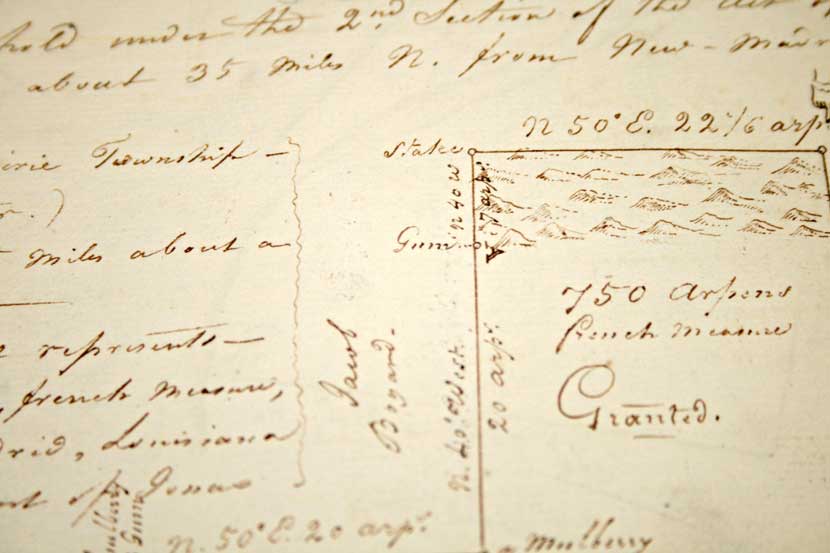 hold under the 2nd Section of the Act of
about 35 Miles N. from New-Madr
N 50° E. 22 1/6 arps
Township —
Stake
N 40 W
7 arps.
Miles about a
Gum
750 Arpens
french Measure
represents —
Jacob
french Measure,
N. 40° West.
20 arps.
Granted.
drid, Louisiana
of Jonas
Mulberry
Gum
N. 50° E. 20 arps.
a Mulberry